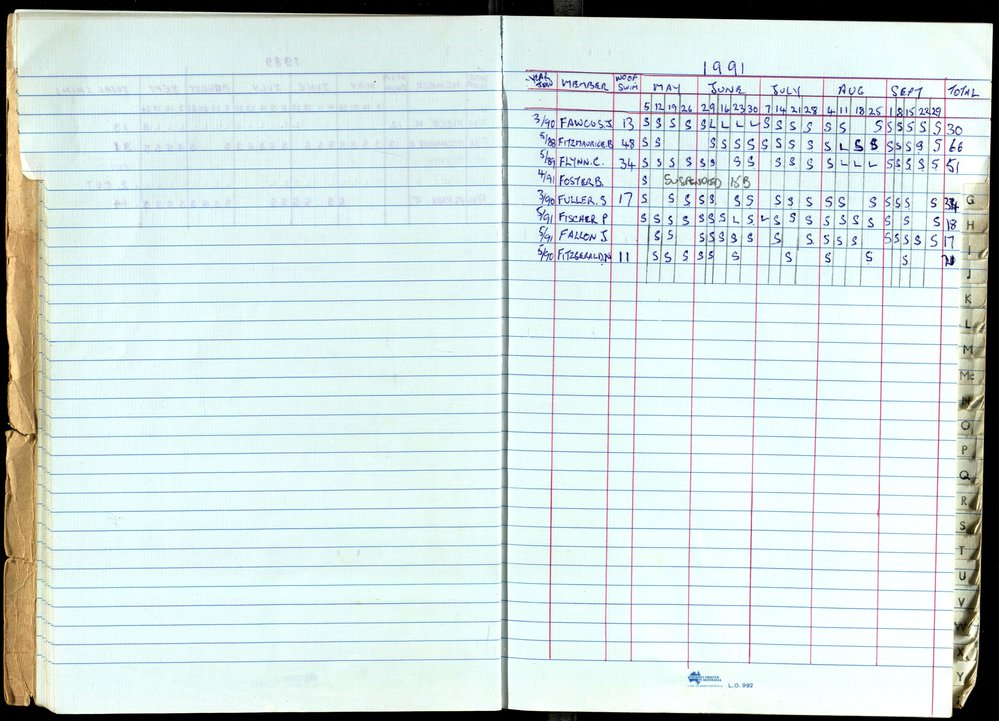 1991
YEAR JOIN MEMBER NO OF SWIM MAY JUNE JULY AUG SEPT TOTAL
5 12 19 26 2 9 16 23 30 7 14 21 28 4 11 18 25 1 8 15 22 29
3/90 FAWCUS J. 13 S S S S S L L L L S S S S S S S S S S S S 30
5/88 FITZMAURICE.B 48 S S S S S S S S S S S S L S S S S S S S 66
5/89 FLYNN.C. 34 S S S S S S S S S S S S L L L S S S S S 51
4/91 FOSTER B. S SUSPENDED
3/90 FULLER.S 17 S S S S S S S S S S S S S S S S S
5/91 FISCHER P S S S S S S S L S L S S S S S S S S S S 18
5/91 FALLON J. S S S S S S S S S S S S S S S S S 17
5/90 FITZGERALD.N 11 S S S S S S S S S S
G
H
I
J
K
L
M
Mc
N
O
P
Q
R
S
T
U
V
W
X
Y
L.O. 992